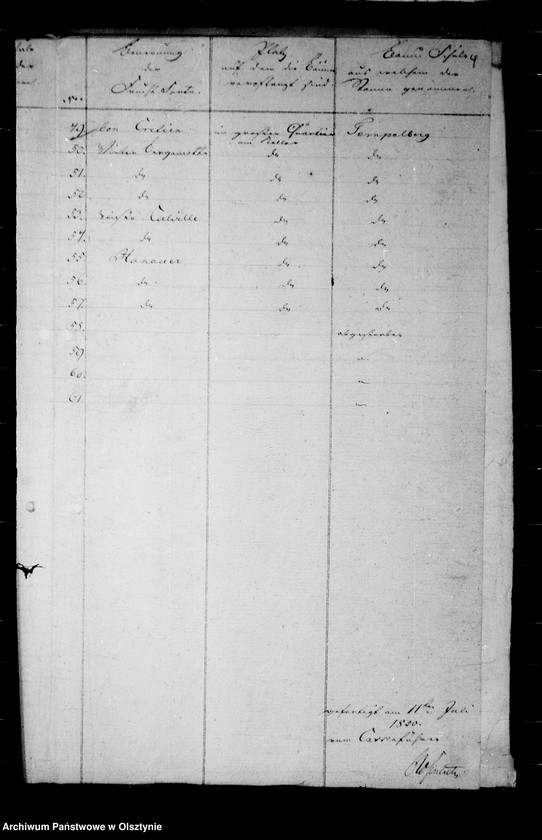 No.
Benennung
der
Frucht Sorte.
Platz
auf dem die Bäume
verpflanzt sind
Baum Schule
aus welcher der
Stamm genommen.
4
49. bon Cretien im großen Quartier Tempelberg
am Keller
50. Winter Bergamotte do do
51. do do do
52. do do do
53. weiße Calville do do
54. do do do
55. Hanauer do do
56. do do do
57. do do do
58. abgestorben
59. "
60. "
61 "
gefertigt am 11ten Juli
1800.
vom
Archiwum Państwowe w Olsztynie